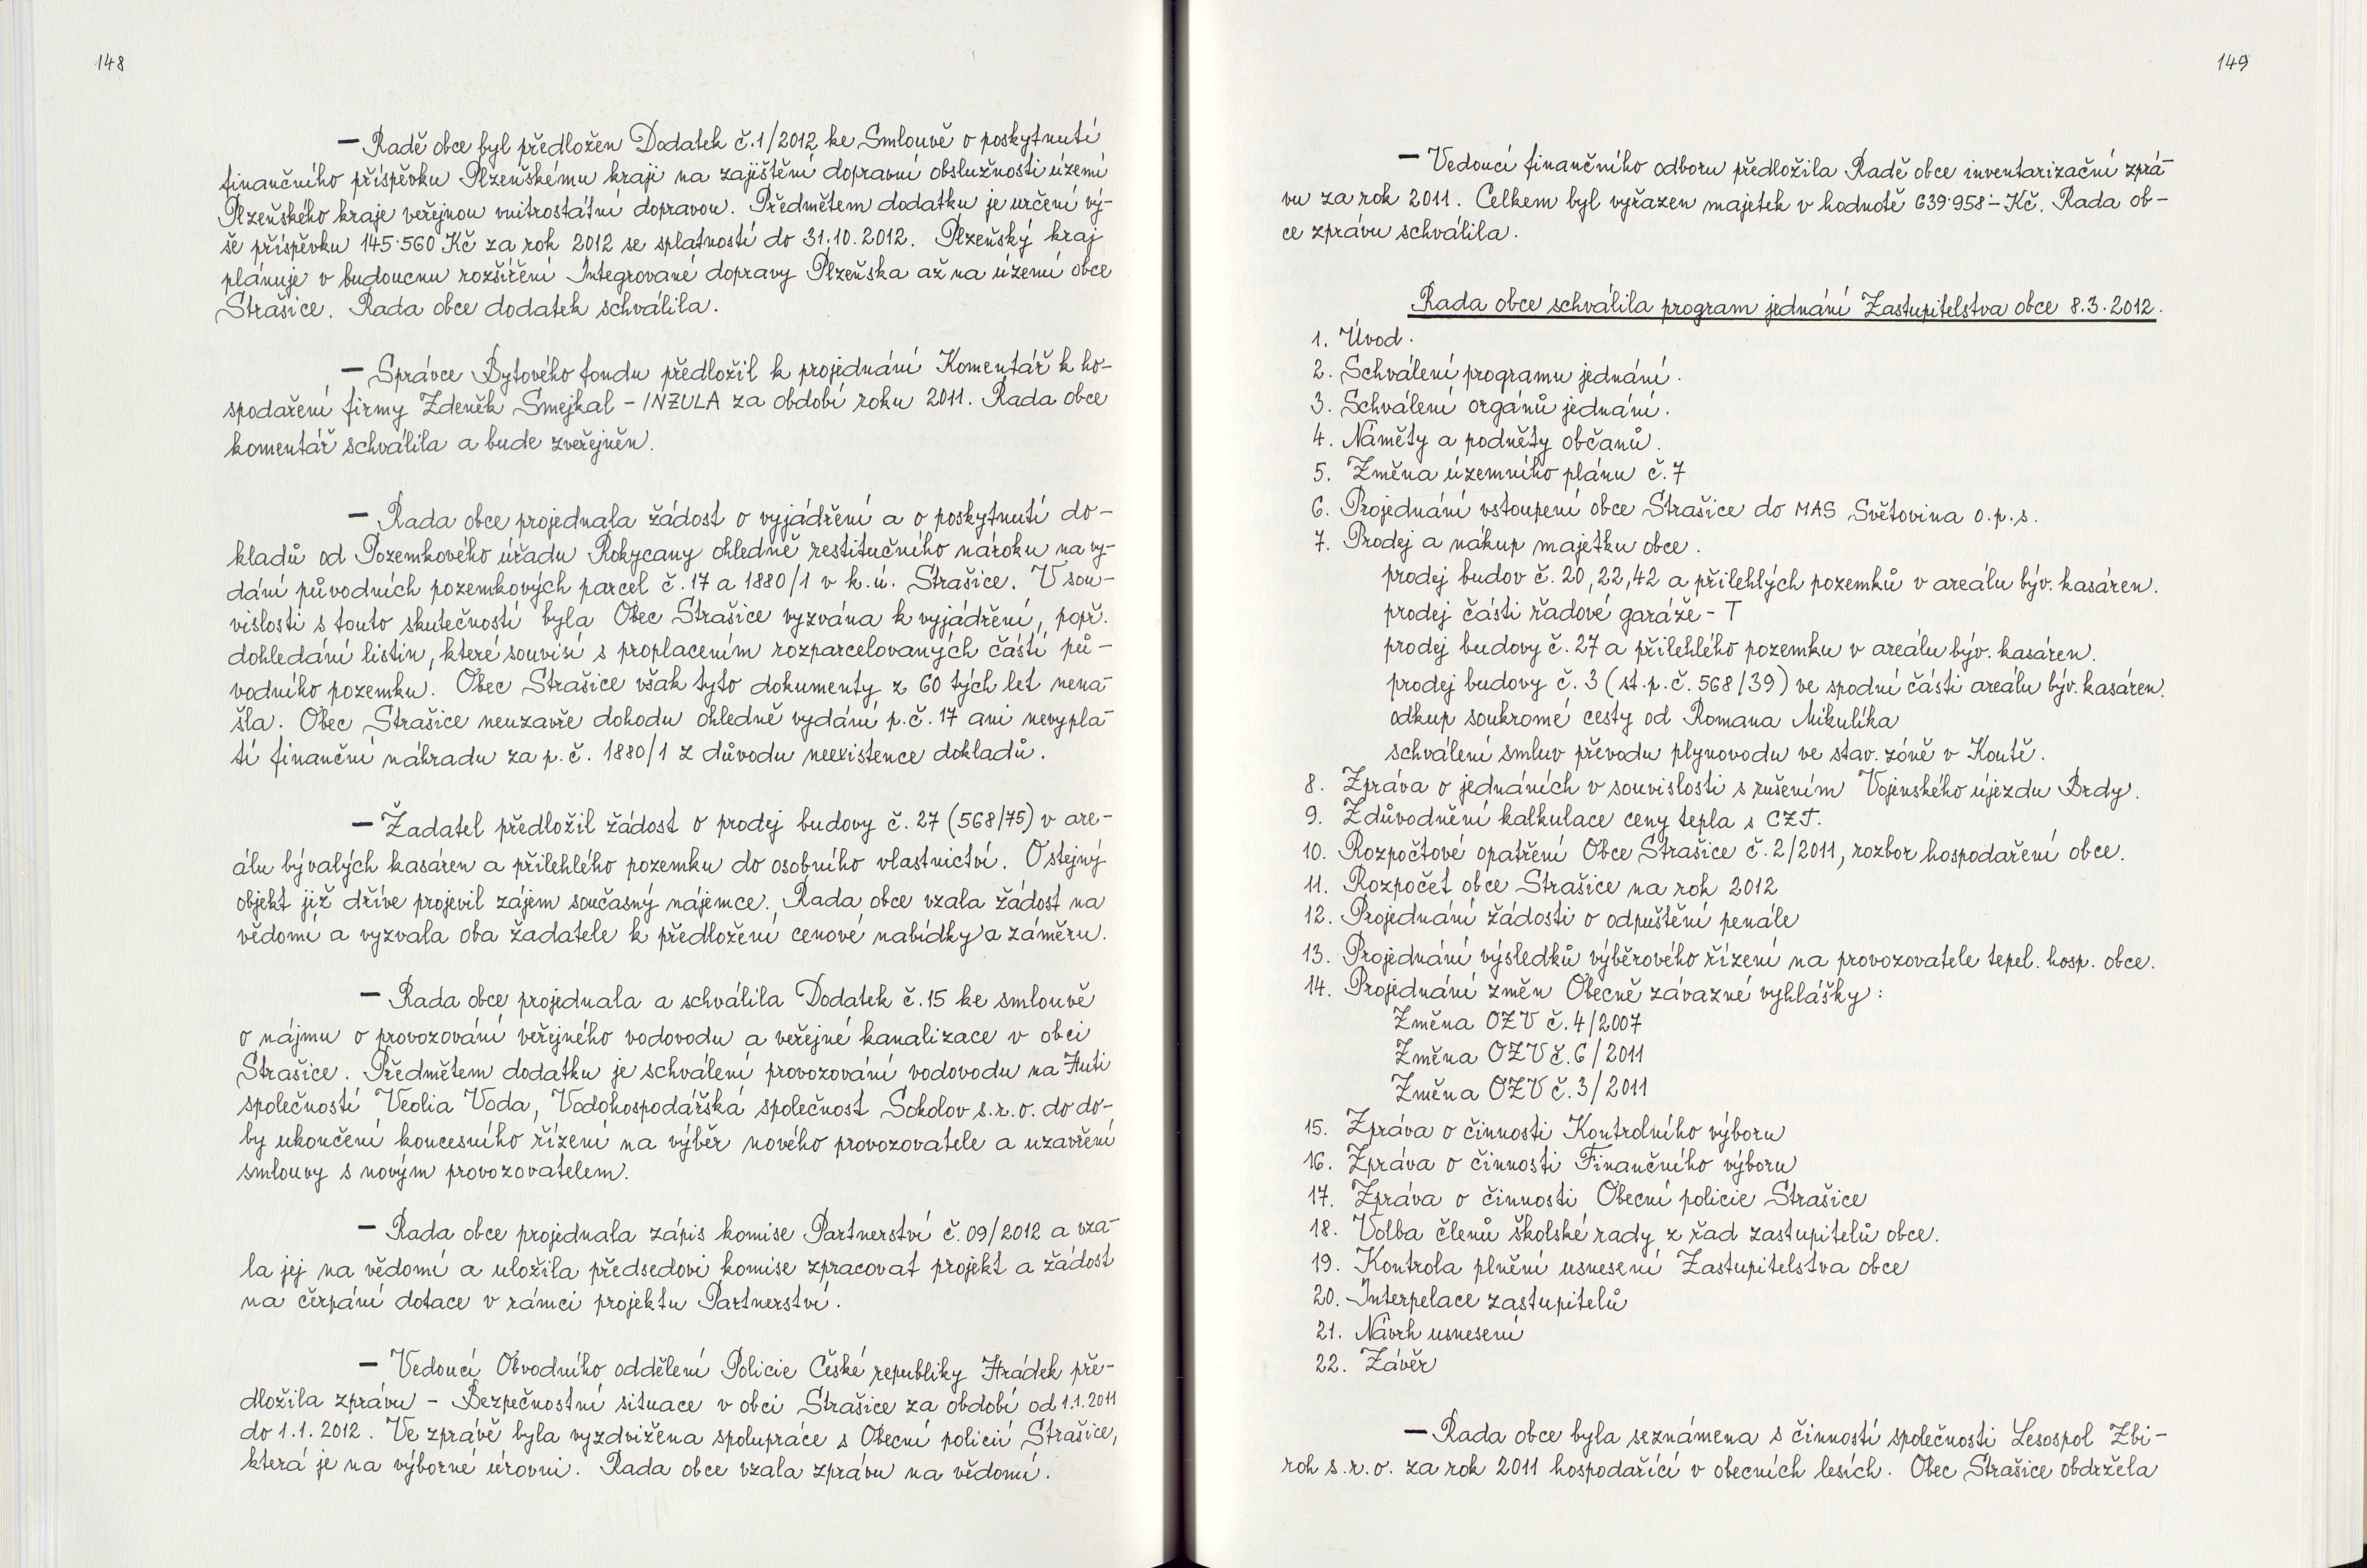 148
— Radě obce byl předložen Dodatek č.1/2012 ke Smlouvě o poskytnutí
finančního příspěvku Plzeňskému kraji na zajištění dopravní obslužnosti území
Plzeňského kraje veřejnou vnitrostátní dopravou. Předmětem dodatku je určení vý-
še příspěvku 145.560 Kč za rok 2012 se splatností do 31.10.2012. Plzeňský kraj
plánuje v budoucnu rozšíření Integrované dopravy Plzeňska až na území obce
Strašice. Rada obce dodatek schválila.
— Správce Bytového fondu předložil k projednání Komentář k ho-
spodaření firmy Zdeněk Smejkal - INZULA za období roku 2011. Rada obce
komentář schválila a bude zveřejněn.
— Rada obce projednala žádost o vyjádření a o poskytnutí do-
kladů od Pozemkového úřadu Rokycany ohledně restitučního nároku na vy-
dání původních pozemkových parcel č. 17 a 1880/1 v k.ú. Strašice. V sou-
vislosti s touto skutečností byla Obec Strašice vyzvána k vyjádření, popř.
dohledání listin, které souvisí s proplacením rozparcelovaných částí pů-
vodního pozemku. Obec Strašice však tyto dokumenty z 60 tých let nena-
šla. Obec Strašice neuzavře dohodu ohledně vydání p.č. 17 ani nevypla-
tí finanční náhradu za p.č. 1880/1 z důvodu neexistence dokladů.
— Žadatel předložil žádost o prodej budovy č. 27 (568/75) v are-
álu bývalých kasáren a přilehlého pozemku do osobního vlastnictví. O stejný
objekt již dříve projevil zájem současný nájemce. Rada obce vzala žádost na
vědomí a vyzvala oba žadatele k předložení cenové nabídky a záměru.
— Rada obce projednala a schválila Dodatek č. 15 ke smlouvě
o nájmu o provozování veřejného vodovodu a veřejné kanalizace v obci
Strašice. Předmětem dodatku je schválení provozování vodovodu na Huti
společností Veolia Voda, Vodohospodářská společnost Sokolov s.r.o. do do-
by ukončení koncesního řízení na výběr nového provozovatele a uzavření
smlouvy s novým provozovatelem.
— Rada obce projednala zápis komise Partnerství č. 09/2012 a vza-
la jej na vědomí a uložila předsedovi komise zpracovat projekt a žádost
na čerpání dotace v rámci projektu Partnerství.
— Vedoucí Obvodního oddělení Policie České republiky Hrádek pře-
dložila zprávu - Bezpečnostní situace v obci Strašice za období od 1.1.2011
do 1.1.2012. Ve zprávě byla vyzdvižena spolupráce s Obecní policií Strašice,
která je na výborné úrovni. Rada obce vzala zprávu na vědomí.
149
— Vedoucí finančního odboru předložila Radě obce inventarizační zprá-
vu za rok 2011. Celkem byl vyřazen majetek v hodnotě 639.958.- Kč. Rada ob-
ce zprávu schválila.
Rada obce schválila program jednání Zastupitelstva obce 8.3.2012.
1. Úvod.
2. Schválení programu jednání.
3. Schválení orgánů jednání.
4. Náměty a podněty občanů.
5. Změna územního plánu č.7
6. Projednání vstoupení obce Strašice do MAS Světovina o.p.s.
7. Prodej a nákup majetku obce.
prodej budov č. 20,22,42 a přilehlých pozemků v areálu býv. kasáren.
prodej části řadové garáže - T
prodej budovy č. 27 a přilehlého pozemku v areálu býv. kasáren.
prodej budovy č. 3 (st.p.č. 568/39) ve spodní části areálu býv. kasáren.
odkup soukromé cesty od Romana Mikulíka
schválení smluv převodu plynovodu ve stav. zóně v Koutě.
8. Zpráva o jednáních v souvislosti s rušením Vojenského újezdu Brdy.
9. Zdůvodnění kalkulace ceny tepla s CZT.
10. Rozpočtové opatření Obce Strašice č. 2/2011, rozbor hospodaření obce.
11. Rozpočet obce Strašice na rok 2012
12. Projednání žádosti o odpuštění penále
13. Projednání výsledků výběrového řízení na provozovatele tepel. hosp. obce.
14. Projednání změn Obecně závazné vyhlášky:
Změna OZV č. 4/2007
Změna OZV č. 6/2011
Změna OZV č. 3/2011
15. Zpráva o činnosti Kontrolního výboru
16. Zpráva o činnosti Finančního výboru
17. Zpráva o činnosti Obecní policie Strašice
18. Volba členů školské rady z řad zastupitelů obce.
19. Kontrola plnění usnesení Zastupitelstva obce
20. Interpelace zastupitelů
21. Návrh usnesení
22. Závěr
— Rada obce byla seznámena s činností společnosti Lesospol Zbi-
roh s.r.o. za rok 2011 hospodařící v obecních lesích. Obec Strašice obdržela